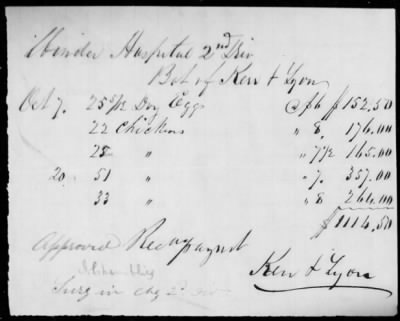 Winder Hospital 2nd Div
Bot of Ken & Lyon
Oct 7. 25 5/12 Doz Eggs @ $6 $152.50
22 Chickens " 8. 176.00
22 " " 7 1/2 165.00
20. 51 " " 7. 357.00
33 " " 8 264.00
$1114.50
Approved Rec payment
Ken & Lyon
Surg in chg 2d Div